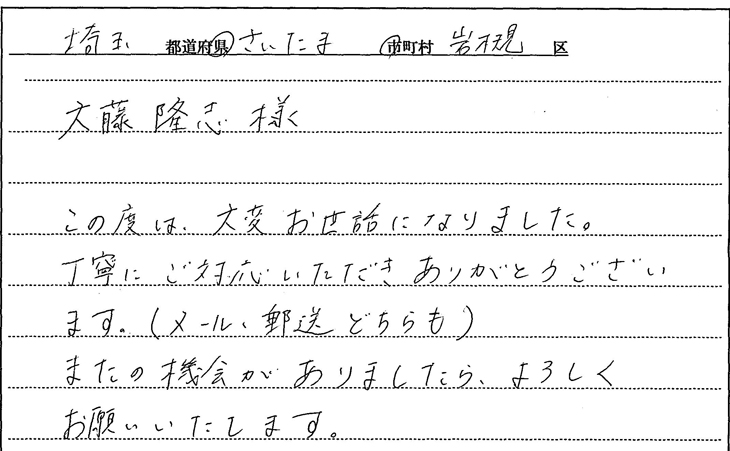 埼玉 都道府県 さいたま 市町村 岩槻 区
大藤 隆志 様
この度は、大変お世話になりました。
丁寧にご対応いただきありがとうござい
ます。(メール、郵送どちらも)
またの機会がありましたら、よろしく
お願いいたします。